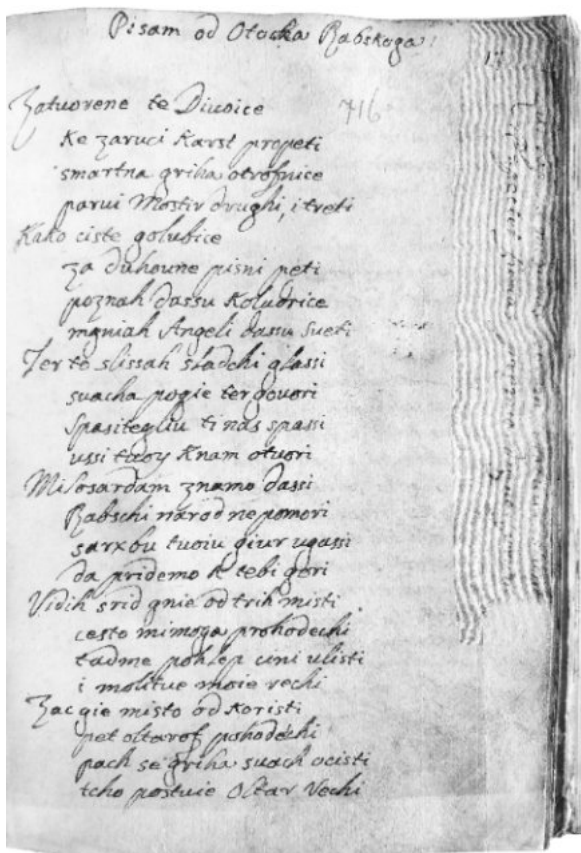 Pisam od Otocka Rabskoga
17
Zatuorene te Diuoice
716
Ke zaruci Karst propeti
smartna griha otrofnice
parui Mostir drughi, i treti
Kako ciste golubice
za duhoune pisni peti
poznah dassu Koludrice
mgniah Angeli dassu sueti
Ter te slissah sladchi glassi
suacha pogie ter gouori
Spasitegliu ti nas spassi
ussi tuoy Knam otuori
Milosardam znamo dassi
Rabschi narod ne pomori
sarxbu tuoiu giur ugassi
da pridemo k tebi gori
Vidih srid gnie od trih misti
cesto mimoga prohodechi
tadme pohlep cini ulisti
i molitue moie rechi
Zac gie misto od koristi
pet oltarof pohodechi
pach se griha suach ocisti
tcho postuie Oltar Vechi